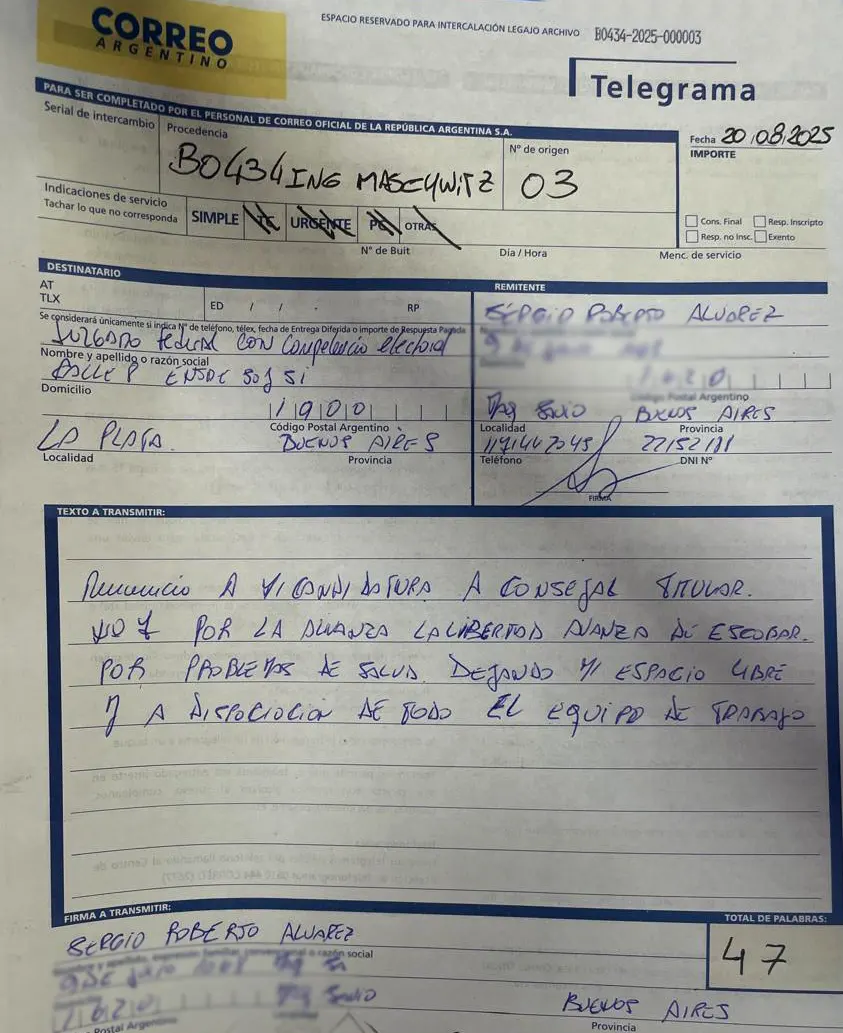 CORREO
ARGENTINO
ESPACIO RESERVADO PARA INTERCALACIÓN LEGAJO ARCHIVO B0434-2025-000003
Telegrama
PARA SER COMPLETADO POR EL PERSONAL DE CORREO OFICIAL DE LA REPÚBLICA ARGENTINA S.A.
Serial de intercambio
Procedencia
B0434 ING MASCHWITZ
N° de origen
03
Fecha 20/08/2025
IMPORTE
Indicaciones de servicio
Tachar lo que no corresponda
SIMPLE TC URGENTE PC OTRAS
Cons. Final Resp. Inscripto
Resp. no Insc. Exento
N° de Buit Dia / Hora Menc. de servicio
DESTINATARIO
AT
TLX
ED / / . RP
Se considerará únicamente si indica N° de teléfono, télex, fecha de Entrega Diferida o importe de Respuesta Pagada
Juzgado federal con competencia electoral
Nombre y apellido o razón social
CALLE 8 ENTRE 50 y 51
Domicilio
1900
Código Postal Argentino
LA PLATA. BUENOS AIRES
Localidad Provincia
REMITENTE
SERGIO ROBERTO ALVAREZ
1620
Código Postal Argentino
BUENOS AIRES
Localidad Provincia
22152181
Teléfono DNI N°
FIRMA
TEXTO A TRANSMITIR:
Renuncio A MI CANDIDATURA A CONSEJAL TITULAR.
POR LA ALIANZA LA LIBERTAD AVANZA DE ESCOBAR.
POR PROBLEMAS DE SALUD. DEJANDO MI ESPACIO LIBRE
Y A DISPOCICION DE TODO EL EQUIPO DE TRABAJO
FIRMA A TRANSMITIR:
TOTAL DE PALABRAS:
47
SERGIO ROBERTO ALVAREZ
razón social
BUENOS AIRES
Provincia